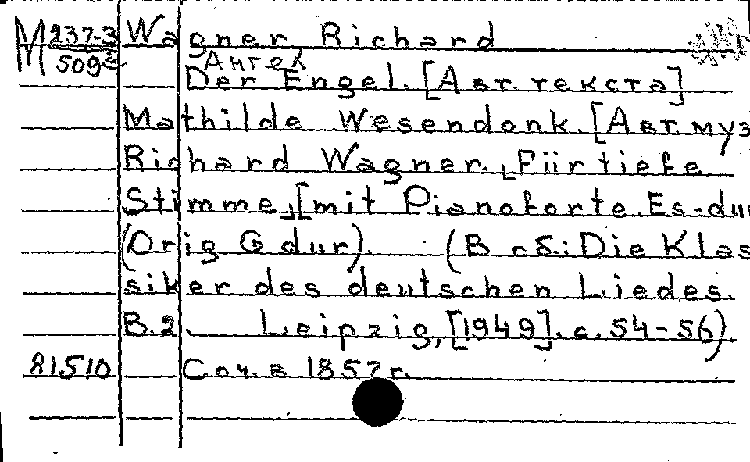 М 237-3 Wagner Richard
509 Ангел
Der Engel. [Авт. текста]
Mathilde Wesendonk. [Авт. муз
Richard Wagner. Für tiefe
Stimme, [mit Pianoforte. Es-dur
(Orig G dur). (В сб.: Die Klas
siker des deutschen Liedes.
B. 2. Leipzig, [1949]. с. 54-56).
81510 Соч. в 1857 г.